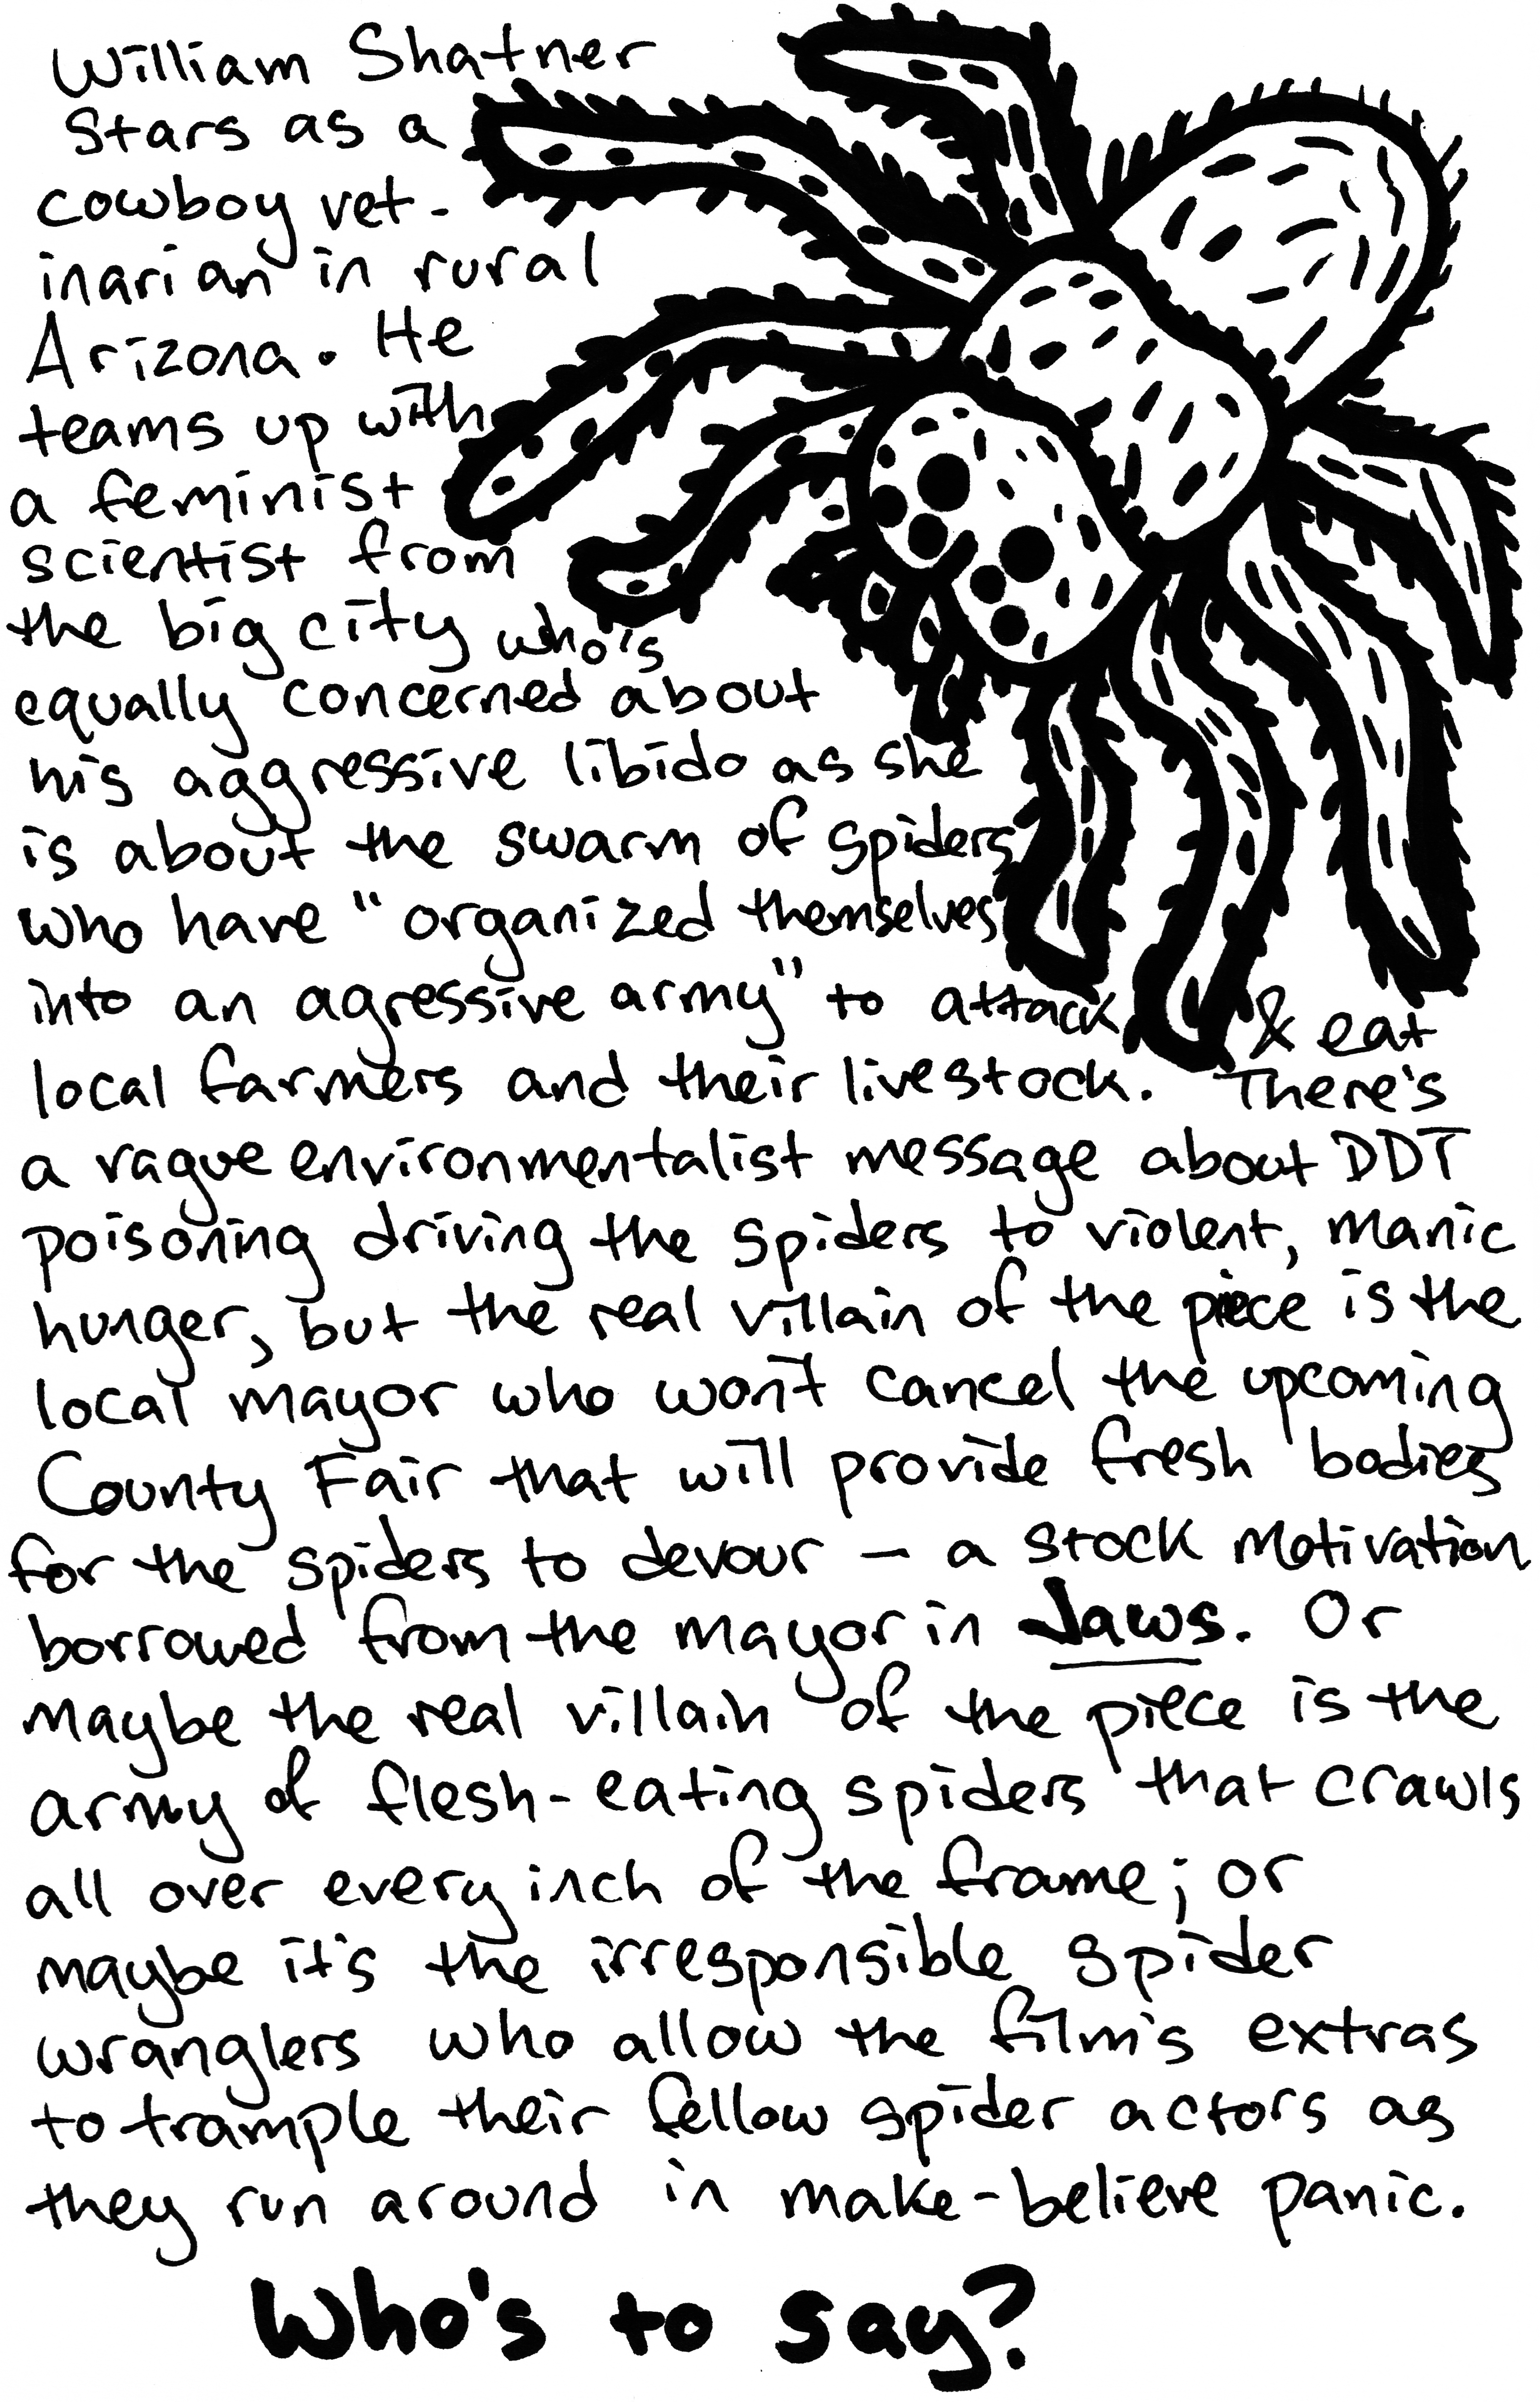 William Shatner
Stars as a
cowboy vet-
inarian in rural
Arizona. He
teams up with
a feminist
scientist from
the big city who's
equally concerned about
his aggressive libido as she
is about the swarm of spiders
who have "organized themselves
into an agressive army" to attack & eat
local farmers and their livestock. There's
a vague environmentalist message about DDT
poisoning driving the spiders to violent, manic
hunger, but the real villain of the piece is the
local mayor who won't cancel the upcoming
County Fair that will provide fresh bodies
for the spiders to devour — a stock motivation
borrowed from the mayor in Jaws. Or
maybe the real villain of the piece is the
army of flesh-eating spiders that crawls
all over every inch of the frame; or
maybe it's the irresponsible spider
wranglers who allow the film's extras
to trample their fellow spider actors as
they run around in make-believe panic.
Who's to say?